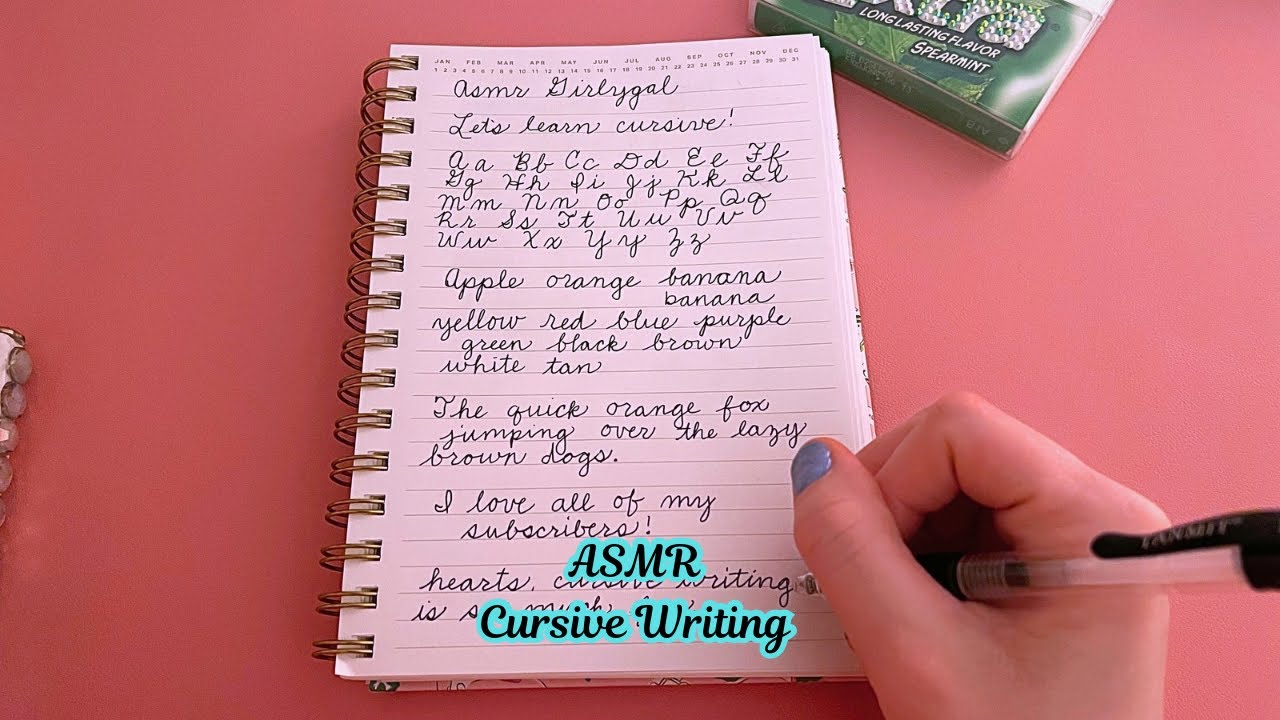 Extra
LONG LASTING FLAVOR
SPEARMINT
JAN FEB MAR APR MAY JUN JUL AUG SEP OCT NOV DEC
1 2 3 4 5 6 7 8 9 10 11 12 13 14 15 16 17 18 19 20 21 22 23 24 25 26 27 28 29 30 31
Asmr Girlygal
Let's learn cursive!
Aa Bb Cc Dd Ee Ff
Gg Hh Ii Jj Kk Ll
Mm Nn Oo Pp Qq
Rr Ss Tt Uu Vv
Ww Xx Yy Zz
Apple orange banana
banana
yellow red blue purple
green black brown
white tan
The quick orange fox
jumping over the lazy
brown dogs.
I love all of my
subscribers!
hearts. cursive writing
is so much
ASMR
Cursive Writing